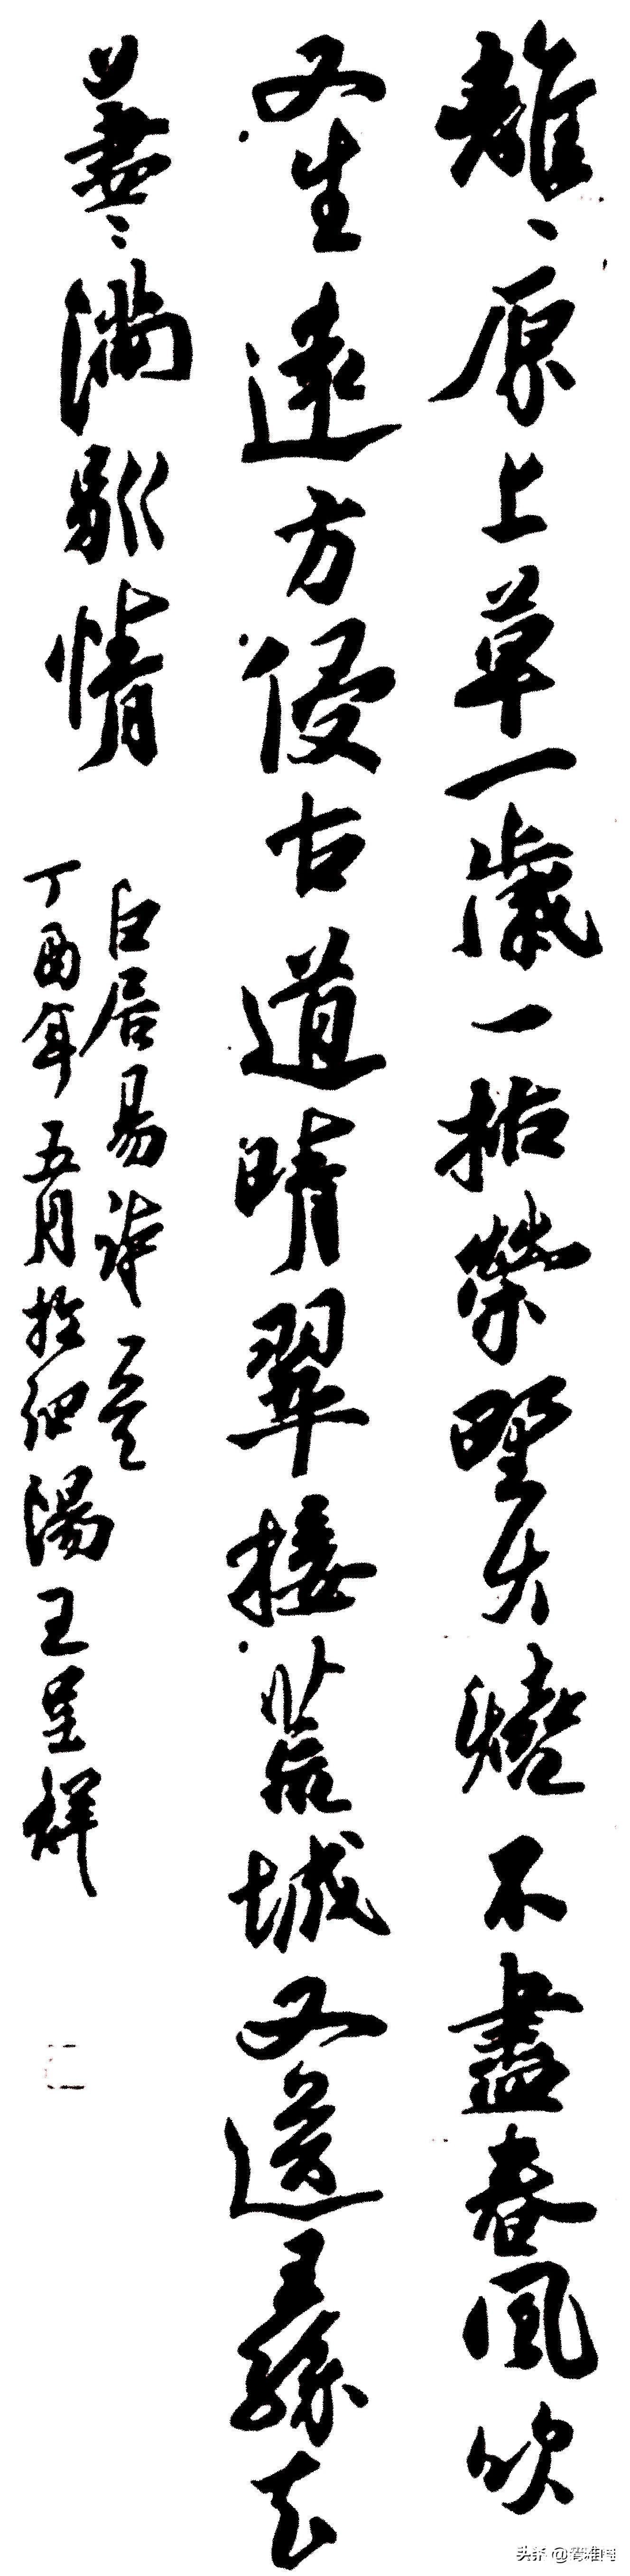 離〻原上草一歲一枯榮野火燒不盡春風吹
又生遠方侵古道晴翠接荒城又送王孫去
萋〻滿別情
白居易詩一首
丁酉年五月於細陽王呈祥
头条